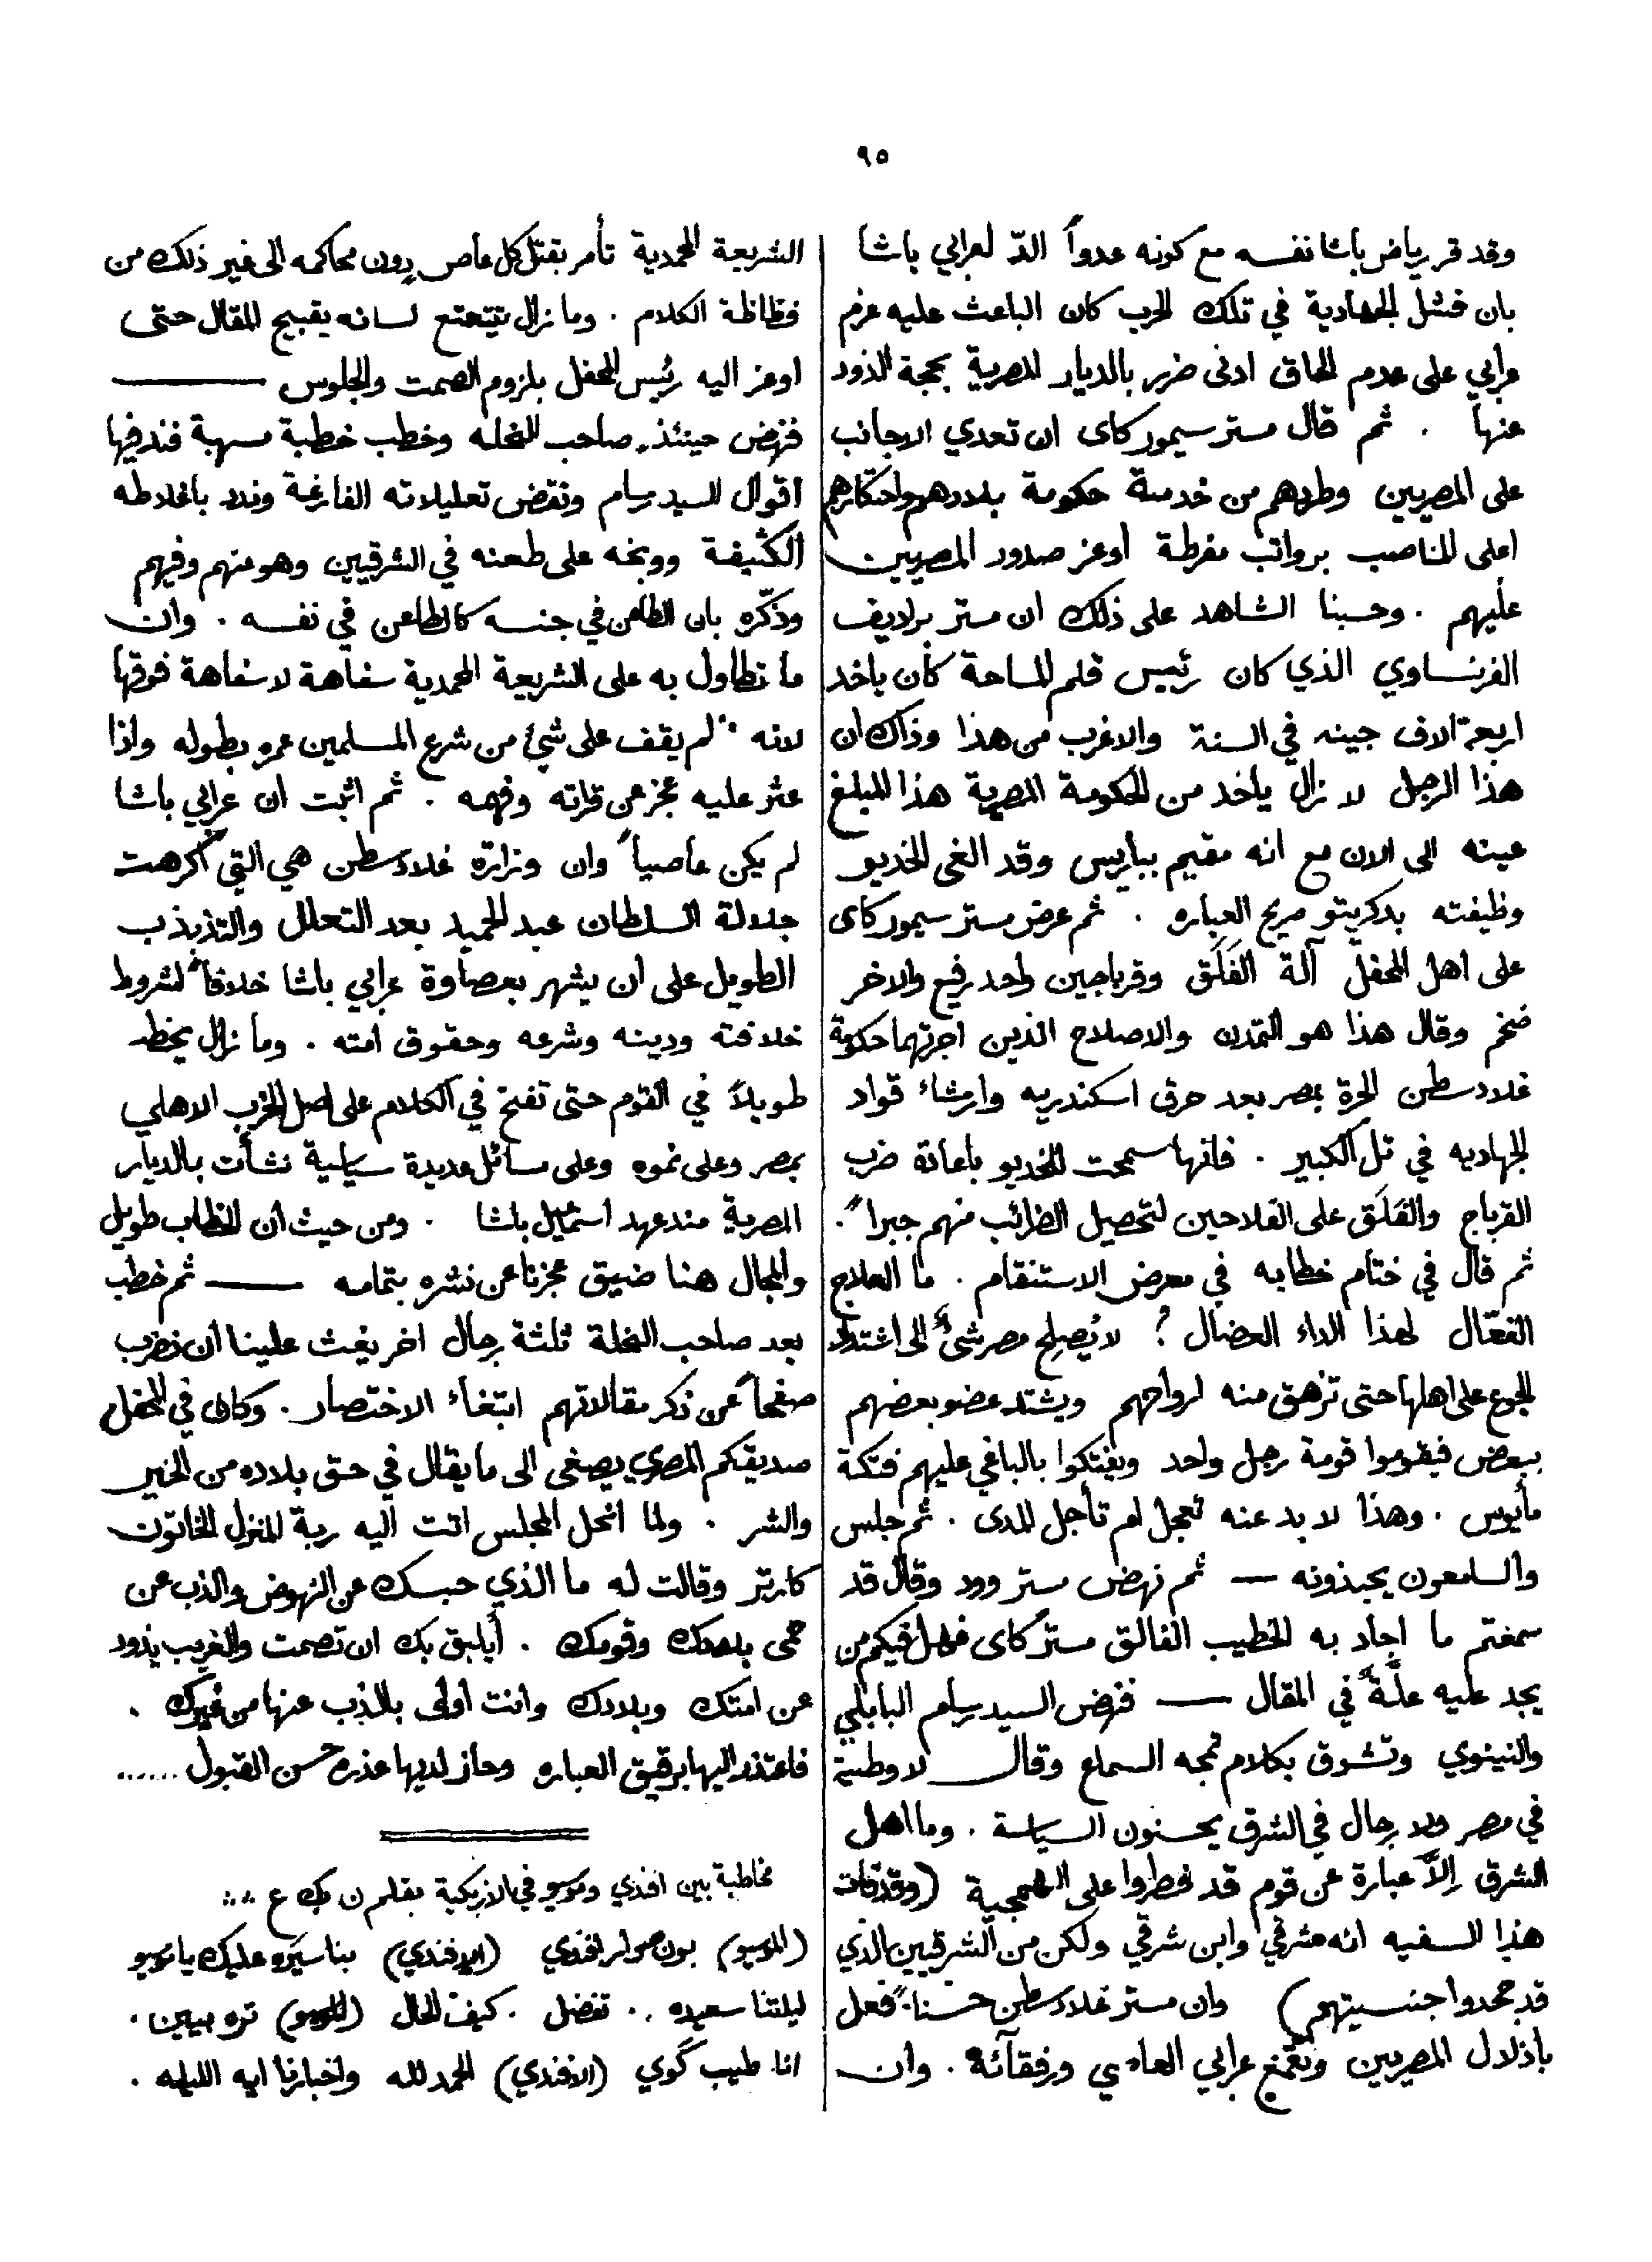 ٩٥
وقد قر رياض باشا نفسه مع كونه عدواً الدّ لعرابي باشا
بان فشل الجهادية في تلك الحرب كان الباعث عليه عزم
عرابي على عدم الحاق ادنى ضرر بالديار المصرية بحجة الذود
عنها . ثم قال مستر سيمور كاى ان تعدي الاجانب
على المصريين وطردهم من خدمة حكومة بلادهم واحتكارهم
اعلى المناصب برواتب مفرطة أوعز صدور المصريين
عليهم . وحسبنا الشاهد على ذلك ان مستر برلاديف
الفرنساوي الذي كان رئيس قلم المساحة كان ياخد
اربعة الاف جينه في السنة والاغرب من هذا وذاك ان
هذا الرجل لا زال ياخد من الحكومة المصرية هذا المبلغ
عينه الى الان مع انه مقيم بباريس وقد الغى الخديو
وظيفته بدكريتو صريح العباره . ثم عرض مستر سيمور كاى
على اهل المحفل آلة الفَلَق وقرباجين واحد رفيع والاخر
ضخم وقال هذا هو التمدن والاصلاح الذين اجرتهما حكومة
غلادسطن الحرة بمصر بعد حرق اسكندريه وارشاء قواد
الجهاديه في تل الكبير . فانها سمحت للخديو باعادة ضرب
القرباج والفَلَق على الفلاحين لتحصيل الضرائب منهم جبراً .
ثم قال في ختام خطابه في معرض الاستنقام . ما العلاج
الفعّال لهذا الداء العضال ? لا يُصلح مصر شئٌ الى اشتداد
الجوع على اهلها حتى تزهق منه ارواحهم ويشتد عضو بعضهم
ببعض فيقوموا قومة رجل واحد ويفتكوا بالباغي عليهم فتكة
مأيوس . وهذا لا بد عنه تعجل ام تأجل المدى . ثم جلس
والسامعون يحبذونه — ثم نهض مستر وود وقال قد
سمعتم ما اجاد به الخطيب الفالق مستر كاى فهل فيكم من
يجد عليه علّةً في المقال — فنهض السيد رسام البابلي
والنينوي وتشوق بكلام تمجه السماع وقال لا وطنية
في مصر ولا رجال في الشرق يحسنون السياسة . وما اهل
الشرق إلاّ عبارة عن قوم قد فطروا على الهمجية (وقد فات
هذا السفيه انه مشرقي وابن شرقي ولكن من الشرقيين الذي
قد جحدوا جنسيتهم) وان مستر غلادسطن حسناً فعل
باذلال المصريين وبقمع عرابي العاصي ورفقآئه . وان
الشريعة المحمدية تأمر بقتل كل عاص بدون محاكمه الى غير ذلك من
فظاظة الكلام . وما زال يتتعتع لسانه بقبيح المقال حتى
اوعز اليه رئيس المحفل بلزوم الصمت والجلوس ——
فنهض حينئذ صاحب النحله وخطب خطبة مسهبة فند فيها
اقوال السيد رسام ونقض تعليلاته الفارغة وندد باغلاطه
الكثيفة ووبخه على طعنه في الشرقيين وهو منهم وفيهم
وذكّره بان الطاعن في جنسه كالطاعن في نفسه . وان
ما تطاول به على الشريعة المحمدية سفاهة لا سفاهة فوقها
لانه لم يقف على شئ من شرع المسلمين عمره بطوله واذا
عثر عليه عجز عن قراته وفهمه . ثم اثبت ان عرابي باشا
لم يكن عاصياً وان وزارة غلادسطن هي التي اكرهت
جلالة السلطان عبد الحميد بعد التعلل والتذبذب
الطويل على ان يشهر بعصاوة عرابي باشا خلافاً لشروط
خلافته ودينه وشرعه وحقوق امته . وما زال يخطب
طويلاً في القوم حتى تفتح في الكلام على اصل الحزب الاهلي
بمصر وعلى نموه وعلى مسائل عديدة سياسية نشأت بالديار
المصرية مند عهد اسمٰعيل باشا . ومن حيث ان الخطاب طويل
والمجال هنا ضيق عجزنا عن نشره بتمامه —— ثم خطب
بعد صاحب النحلة ثلثة رجال اخر يغث علينا أن نضرب
صفحاً عن ذكر مقالاتهم ابتغاء الاختصار . وكان في المحفل
صديقكم المصري يصغى الى ما يقال في حق بلاده من الخير
والشر . ولما انحل المجلس اتت اليه ربة المنزل الخاتون
كارتر وقالت له ما الذي حبسك عن النهوض والذب عن
حمى بلادك وقومك . أيليق بك ان تصمت والغريب يذود
عن امتك وبلادك وانت اولى بالذب عنها من غيرك .
فاعتذر اليها برقيق العباره وحاز لديها عذره حسن القبول ......
مخاطبة بين افندي وموسيو في الازبكية بقلم ن بك ع
(الموسيو) بون صوار افندي (الافندي) بناسيره عليك يا موسيو
ليلتنا سعيده .. تفضل . كيف الحال (الموسيو) تره بيين .
انا طيب كوي (الافندي) الحمد لله واخبارنا ايه الليله .